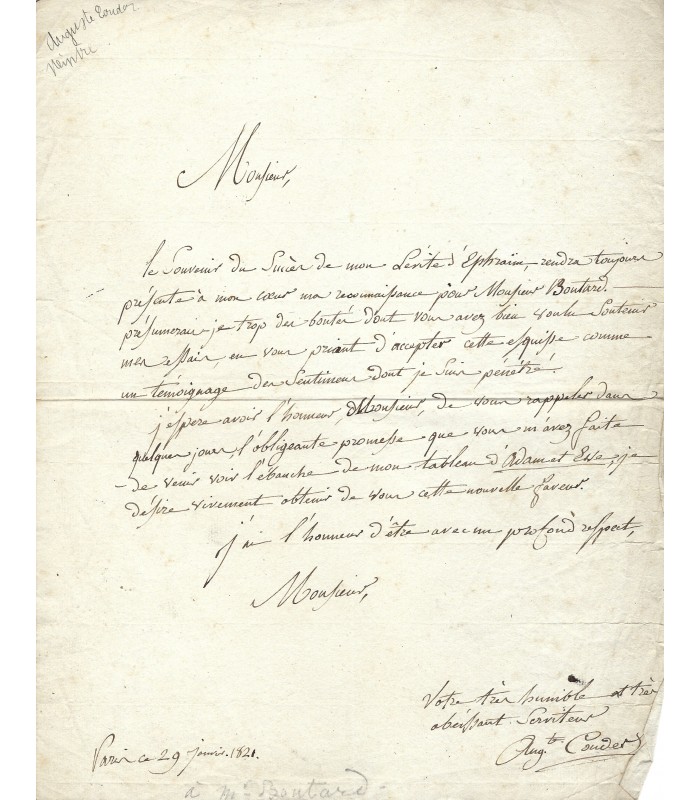 Auguste Couder
Peintre
Monsieur,
le Souvenir du Succès de mon Lévite d'Ephraïm, rendra toujours
présente à mon cœur ma reconnaissance pour Monsieur Boutard.
présumerai-je trop des bontés dont vous avez bien voulu Soutenir
mes essais, en vous priant d'accepter cette esquisse comme
un témoignage des Sentimens dont je Suis pénétré.
j'espere avoir l'honneur, Monsieur, de vous rappeler dans
quelques jours, l'obligeante promesse que vous m'avez faite
de venir voir l'ébauche de mon tableau d'Adam et Eve, je
désire vivement obtenir de vous cette nouvelle faveur.
j'ai l'honneur d'être avec un profond respect,
Monsieur,
Votre très humble et très
obéissant Serviteur
Aug.te Couder
Paris ce 29 janvier. 1821.
à Mr Boutard